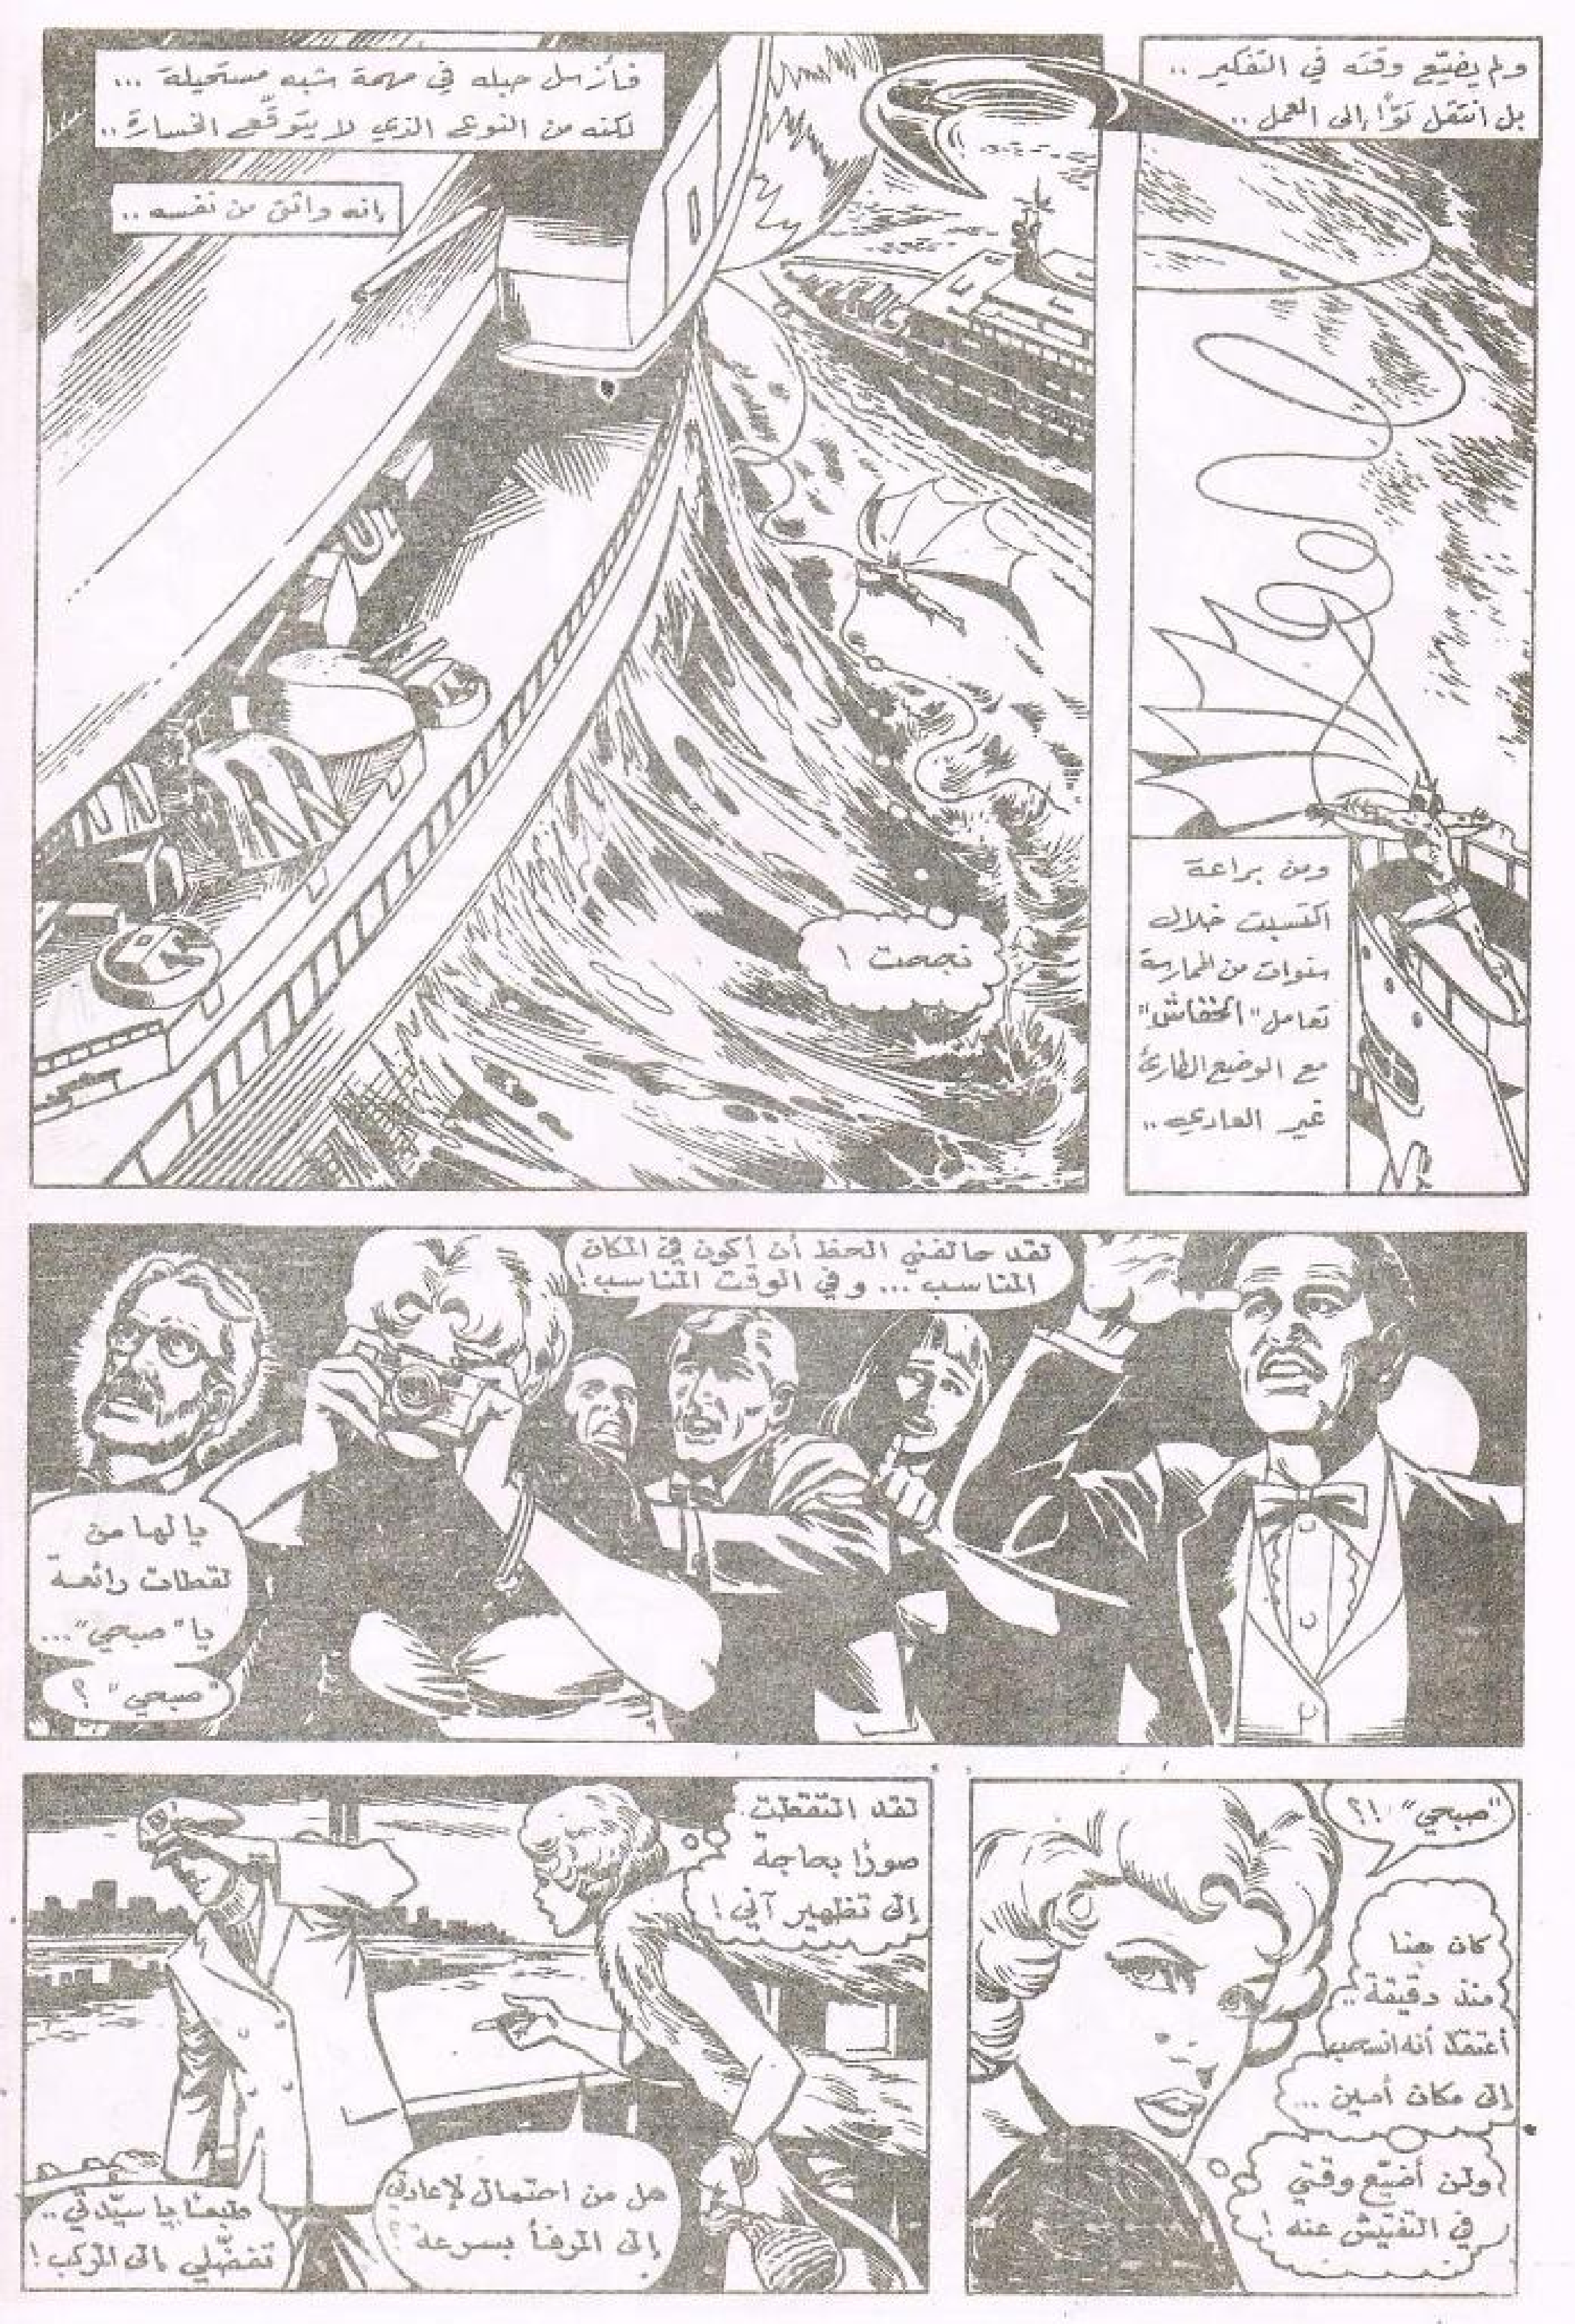 ولم يضيّع وقته في التفكير ..
بل انتقل توًّا إلى العمل ..
ومن براعة
اكتسبت خلال
سنوات من الممارسة
تعامل "الخفاش"
مع الوضع الطارئ
غير العادي ..
فأرسل حبله في مهمة شبه مستحيلة ...
لكنه من النوع الذي لا يتوقّع الخسارة ..
إنه واثق من نفسه ..
نجحت !
لقد حالفني الحظ أن أكون في المكان
المناسب ... وفي الوقت المناسب !
يا لها من
لقطات رائعة
يا "صبحي" ...
"صبحي" ؟
"صبحي" !؟
كان هنا
منذ دقيقة ..
أعتقد أنه انسحب
إلى مكان أمين ...
ولن أضيّع وقتي
في التفتيش عنه !
لقد التقطت
صورًا بحاجة
إلى تظهير آني !
هل من احتمال لإعادتي
إلى المرفأ بسرعة ؟
طبعًا يا سيّدتي ..
تفضّلي إلى المركب !